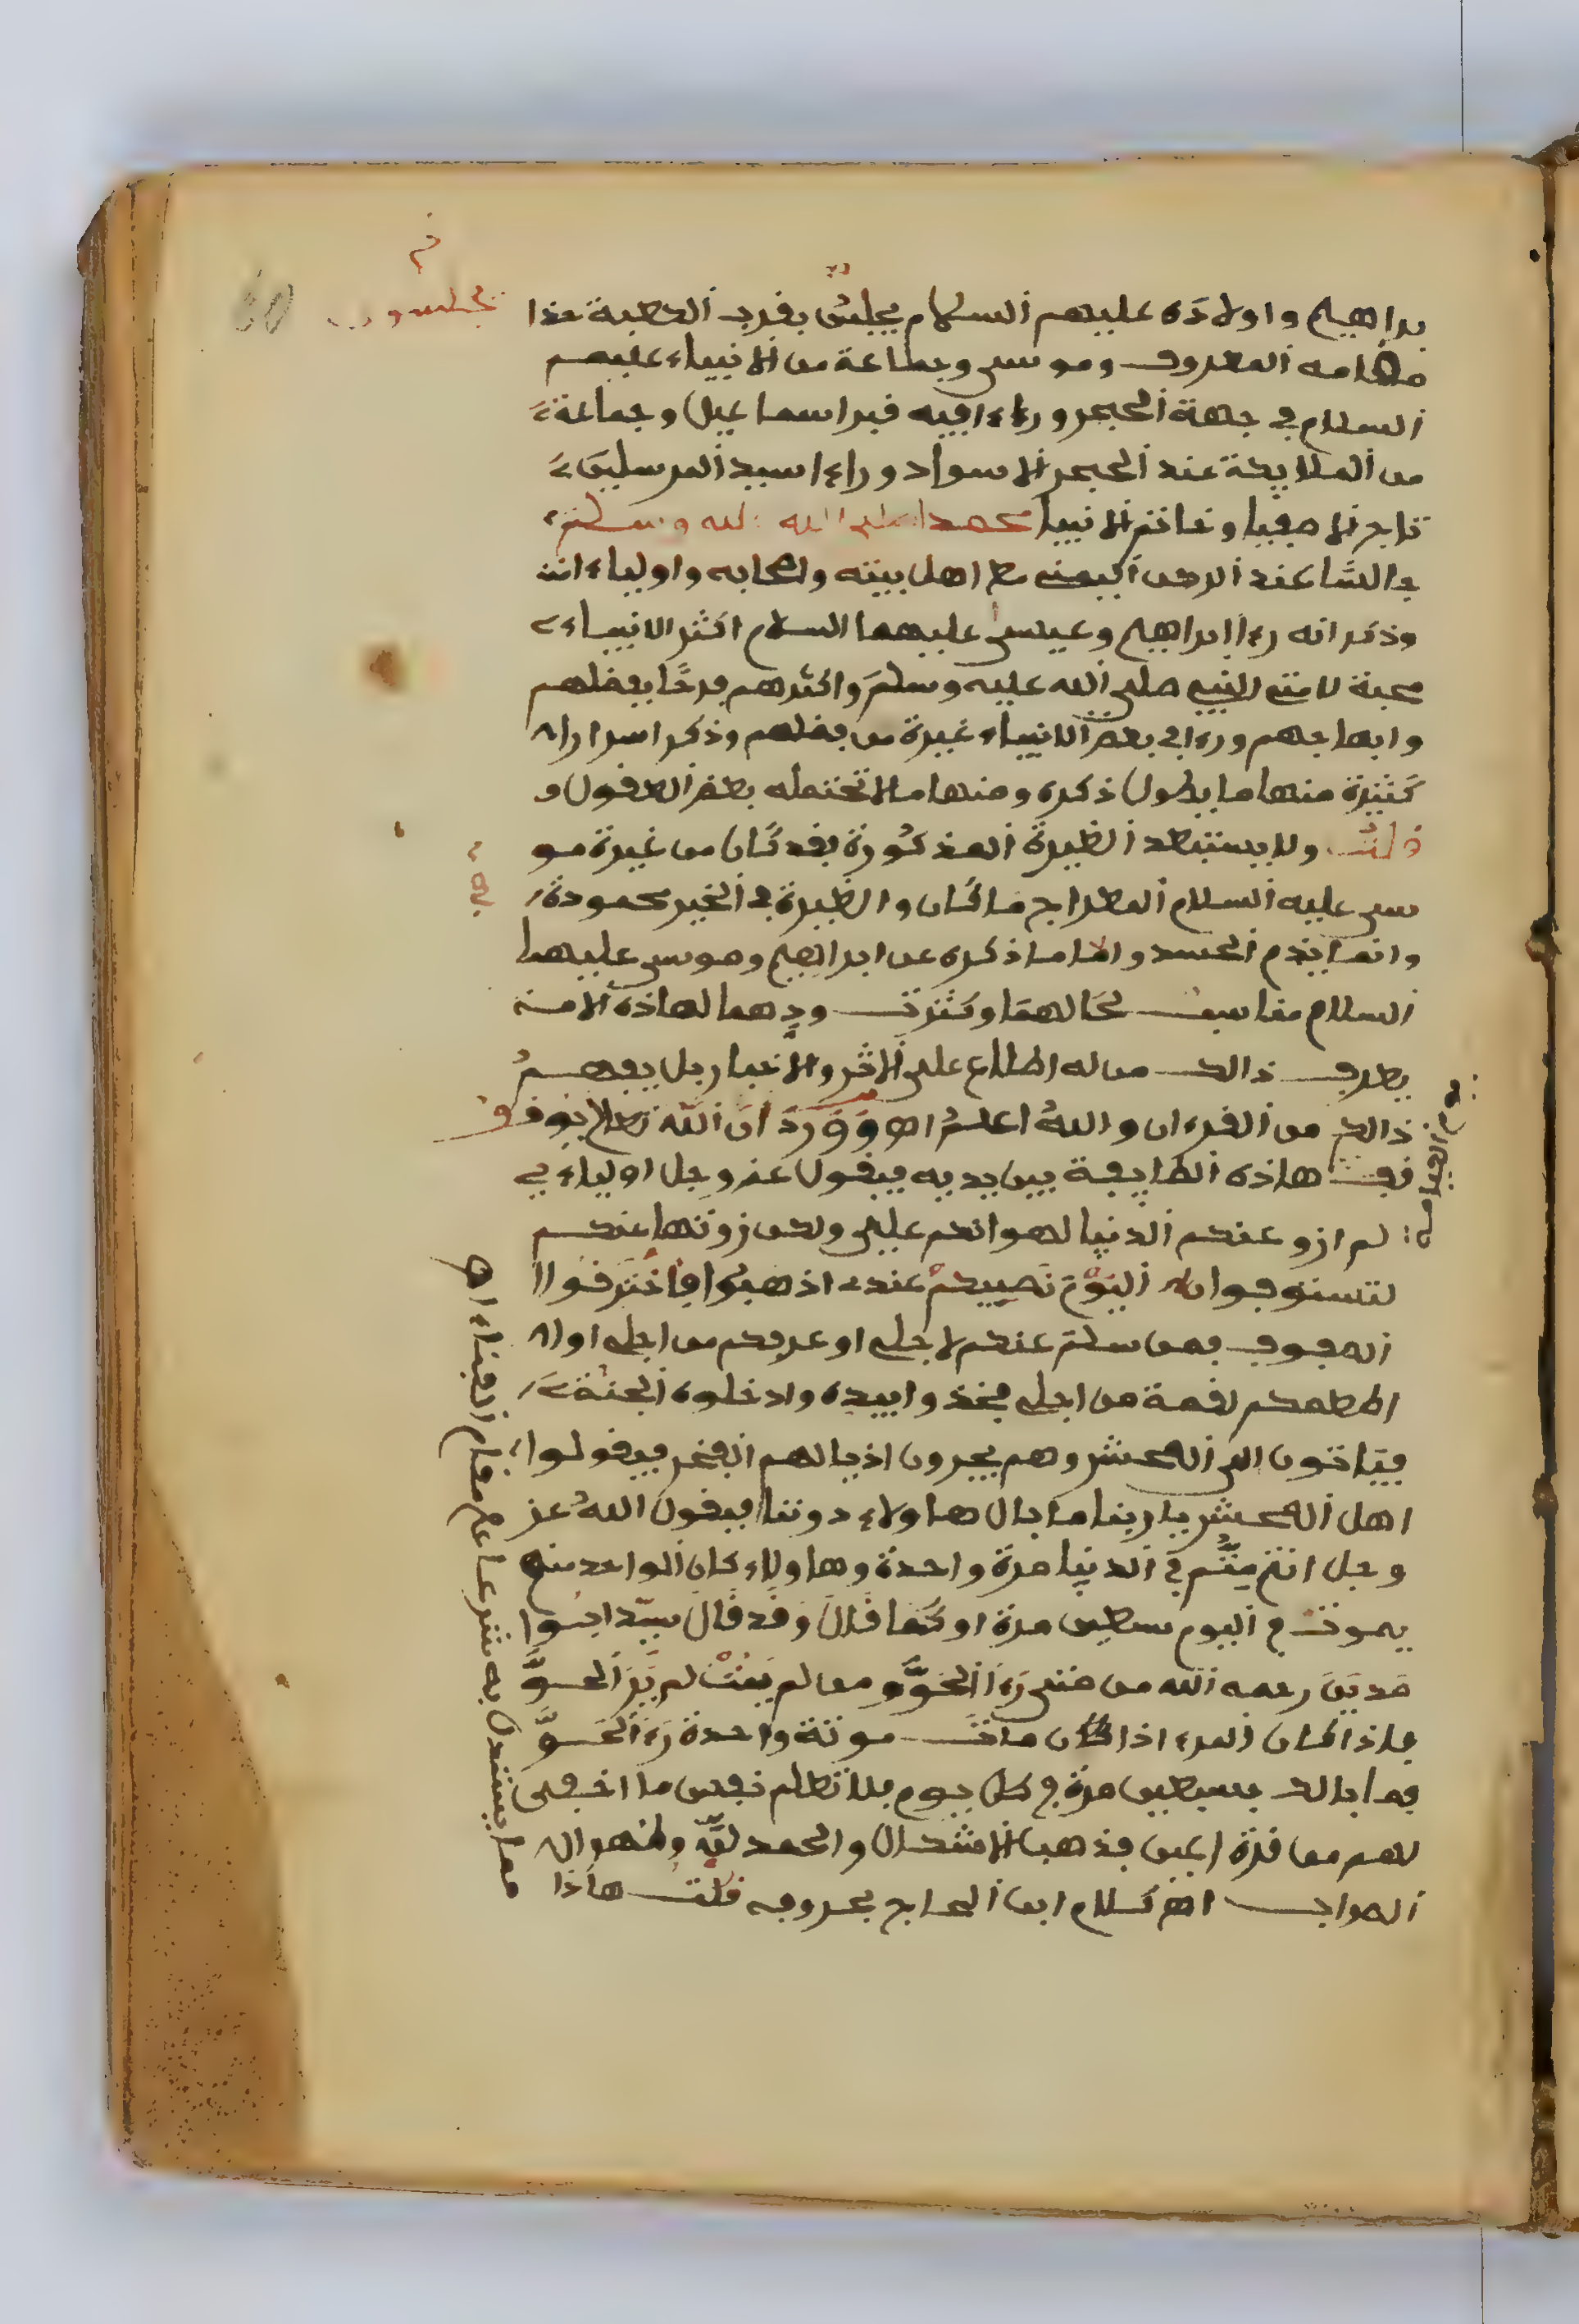 براهيم واولاده عليهم السلام يجلس بقرب الكعبة حذا
مقامه المعروف وموسى وجماعة من الانبياء عليهم
السلام في جهة الحجر ورءا فيه قبر اسماعيل وجماعة
من الملايكة عند الحجر الاسواد ورءا سيد المرسلين
تاج الاصفيا وخاتم الانبيا محمدا صلى الله عليه وسلم
جالسا عند الركن اليمني مع اهل بيته واصحابه واولياء امته
وذكر انه رءا ابراهيم وعيسى عليهما السلام اكثر الانبياء
محبة لامة النبي صلى الله عليه وسلم واكثرهم فرحا بفضلهم
وابهاجهم ورءا في بعض الانبياء غيرة من فضلهم وذكر اسرارا
كثيرة منها ما يطول ذكره ومنها ما لا تحتمله بعض العقول و
قلت ولا يستبعد الغيرة المذكورة فقد كان من غيرة مو
سى عليه السلام المعراج ما كان والغيرة في الخير محمودة
وانما يذم الحسد واما ما ذكره عن ابراهيم وموسى عليهما
السلام مناسب لحالهما وكثرت ودهما لهاذه الامة
يعرف ذالك من له اطلاع على الاثر والاخبار بل يفهم
ذالك من القرءان والله اعلم اه وورد ان الله تعالى يوقف
فقـ هاذه الطايفة بين يديه فيقول عز وجل اوليائي
لم ازو عنكم الدنيا لهوانكم علي ولكن زويتها عنكم
لتستوفوا اليوم نصيبكم عندي اذهبوا فاخترقوا
الصفوف فمن سلم عنكم لاجلي او عرفكم من اجلي او
اطعمكم لقمة من اجلي فخذوا بيده وادخلوه الجنة
فيتاتون الى المحشر وهم يجرون اذيالهم الفخر فيقولوا
اهل المحشر يا ربنا ما بال هاولاء دوننا فيقول الله عز
وجل انتم متم في الدنيا مرة واحدة وهاولاء كان الواحد منهم
يموت في اليوم سبعين مرة او كما قال وقد قال سيد ابو
مدين رحمه الله من مات رءا الحق ومن لم يمت لم ير الحق
فاذا كان المرء اذا كان مات موتة واحدة رءا الحق
فما بالك بسبعين مرة في كل يوم فلا تعلم نفس ما اخفى
لهم من قرة اعين فذهب الاشكال والحمد لله وظهر
الصواب اه كلام ابن الحاج بحروفه قلت هاذا
مما يستدل به شرعا على مقام الفناء اه
يجلسون
يوم القيامة